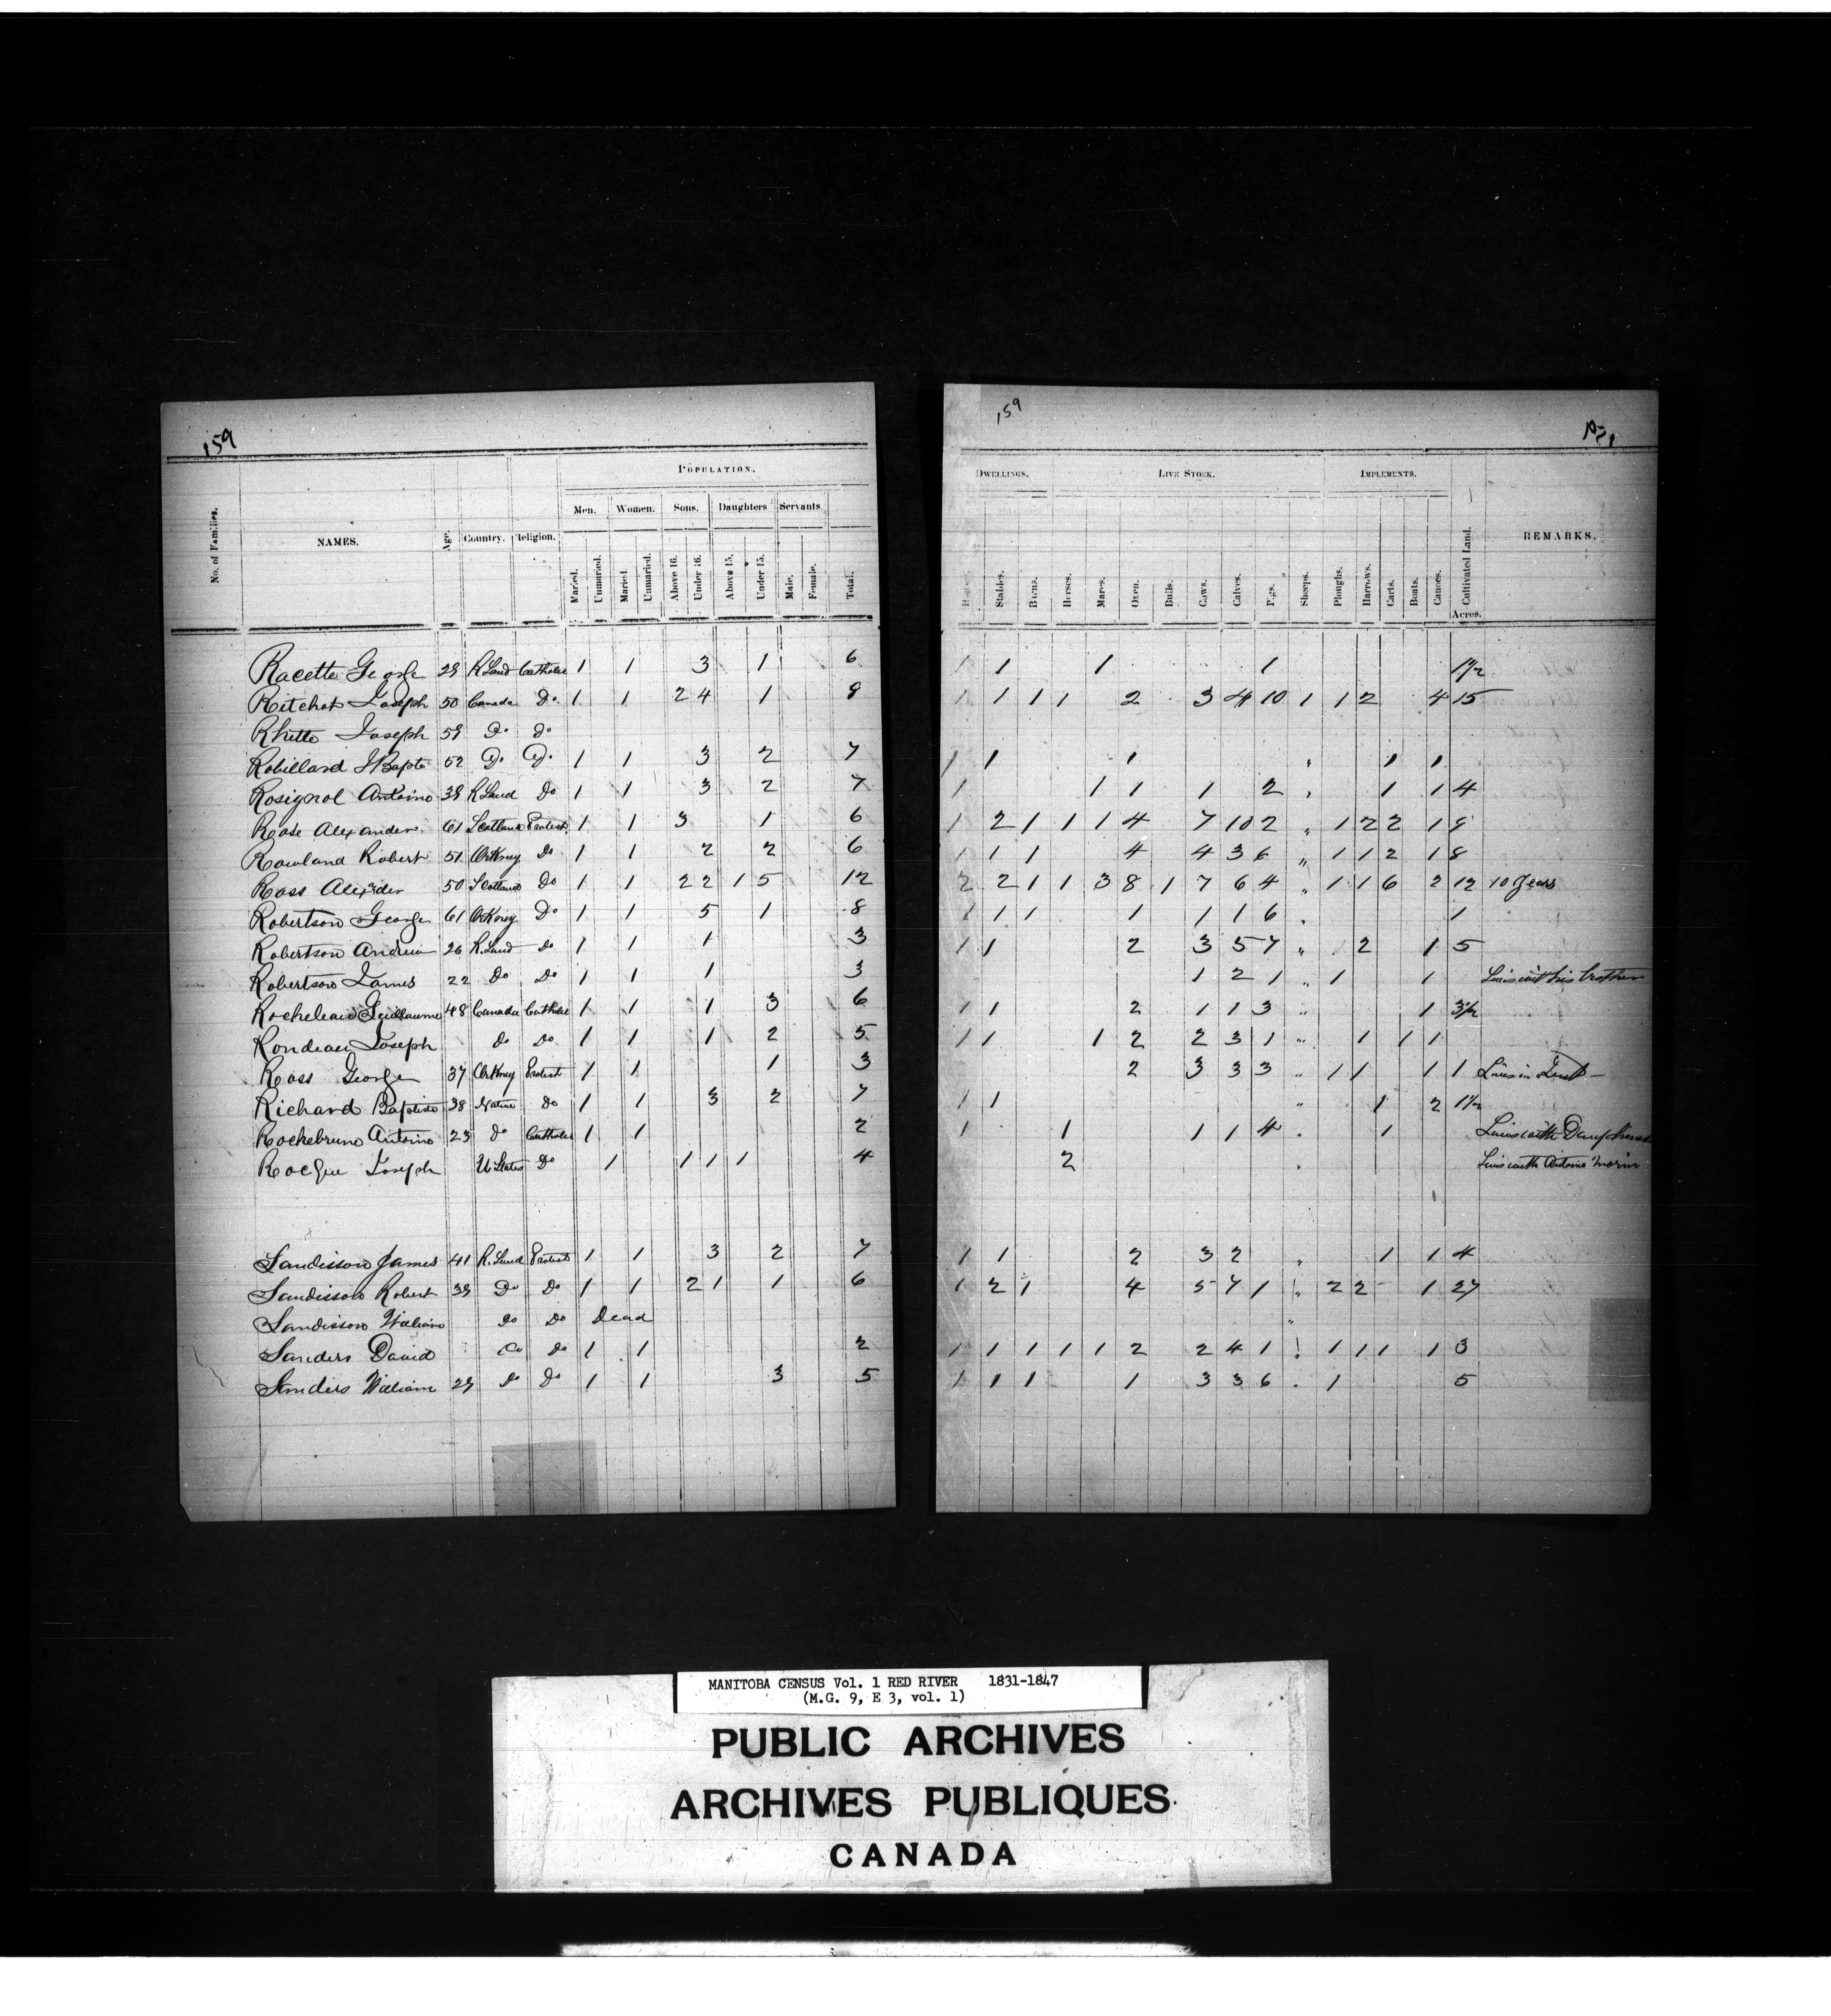 159
POPULATION.
Men. Women. Sons. Daughters Servants.
No. of Families. NAMES. Age. Country. Religion. Married. Unmaried. Maried. Unmaried. Above 16. Under 16. Above 15. Under 15. Male. Female. Total.
Racette George 29 R Land Catholic 1 1 3 1 6
Ritchot Joseph 50 Canada Do 1 1 2 4 1 8
Rhette Joseph 59 Do Do
Robillard J Bapte 52 Do Do 1 1 3 2 7
Rosignol Antoine 39 R Land Do 1 1 3 2 7
Rose Alexander 61 Scotland Protest 1 1 3 1 6
Rowland Robert 51 Orkney Do 1 1 2 2 6
Ross Alexder 50 Scotland Do 1 1 2 2 1 5 12
Robertson George 61 Orkney Do 1 1 5 1 8
Robertson Andrew 26 R. Land Do 1 1 1 3
Robertson James 22 Do Do 1 1 1 3
Rocheleau Guillaume 48 Canada Catholic 1 1 1 3 6
Rondeau Joseph Do Do 1 1 1 2 5
Ross George 37 Orkney Protest 1 1 1 3
Richard Baptiste 38 Native Do 1 1 3 2 7
Rochebrune Antoine 23 Do Catholic 1 1 2
Joseph U States Do 1 1 1 1 4
Sandisson James 41 R. Land Protest 1 1 3 2 7
Sandisson Robert 39 Do Do 1 1 2 1 1 6
Sandisson William Do Do Dead
Sanders David Do Do 1 1 2
Sanders William 29 Do Do 1 1 3 5
159
DWELLINGS. LIVE STOCK. IMPLEMENTS.
Stables. Barns. Horses. Mares. Oxen. Bulls. Cows. Calves. Pigs. Sheeps. Ploughs. Harrows. Carts. Boats. Canoes. Cultivated Land. REMARKS.
Acres.
1 1 1 1 1½
1 1 1 1 2 3 4 10 1 1 2 4 15
1 1 1 1 1
1 1 1 1 2 1 1 4
1 2 1 1 1 4 7 10 2 " 1 2 2 1 9
1 1 1 4 4 3 6 " 1 1 2 1 8
2 2 1 1 3 8 1 7 6 4 " 1 1 6 2 12 10 Years
1 1 1 1 1 1 6 1
1 1 2 3 5 7 " 2 1 5
1 2 1 " 1 1 Lives with his brother
1 1 2 1 1 3 " 1 3½
1 1 1 2 2 3 1 " 1 1 1
2 3 3 3 " 1 1 1 1 Lives in
1 1 " 1 2 1½
1 1 1 1 4 1 Lives with
2 Lives with Antoine Morin
1 1 2 3 2 1 1 4
1 2 1 4 5 7 1 " 2 2 1 27
"
1 1 1 1 1 2 2 4 1 1 1 1 1 3
1 1 1 1 3 3 6 1 5
MANITOBA CENSUS Vol. 1 RED RIVER 1831-1847
(M.G. 9, E 3, vol. 1)
PUBLIC ARCHIVES
ARCHIVES PUBLIQUES
CANADA